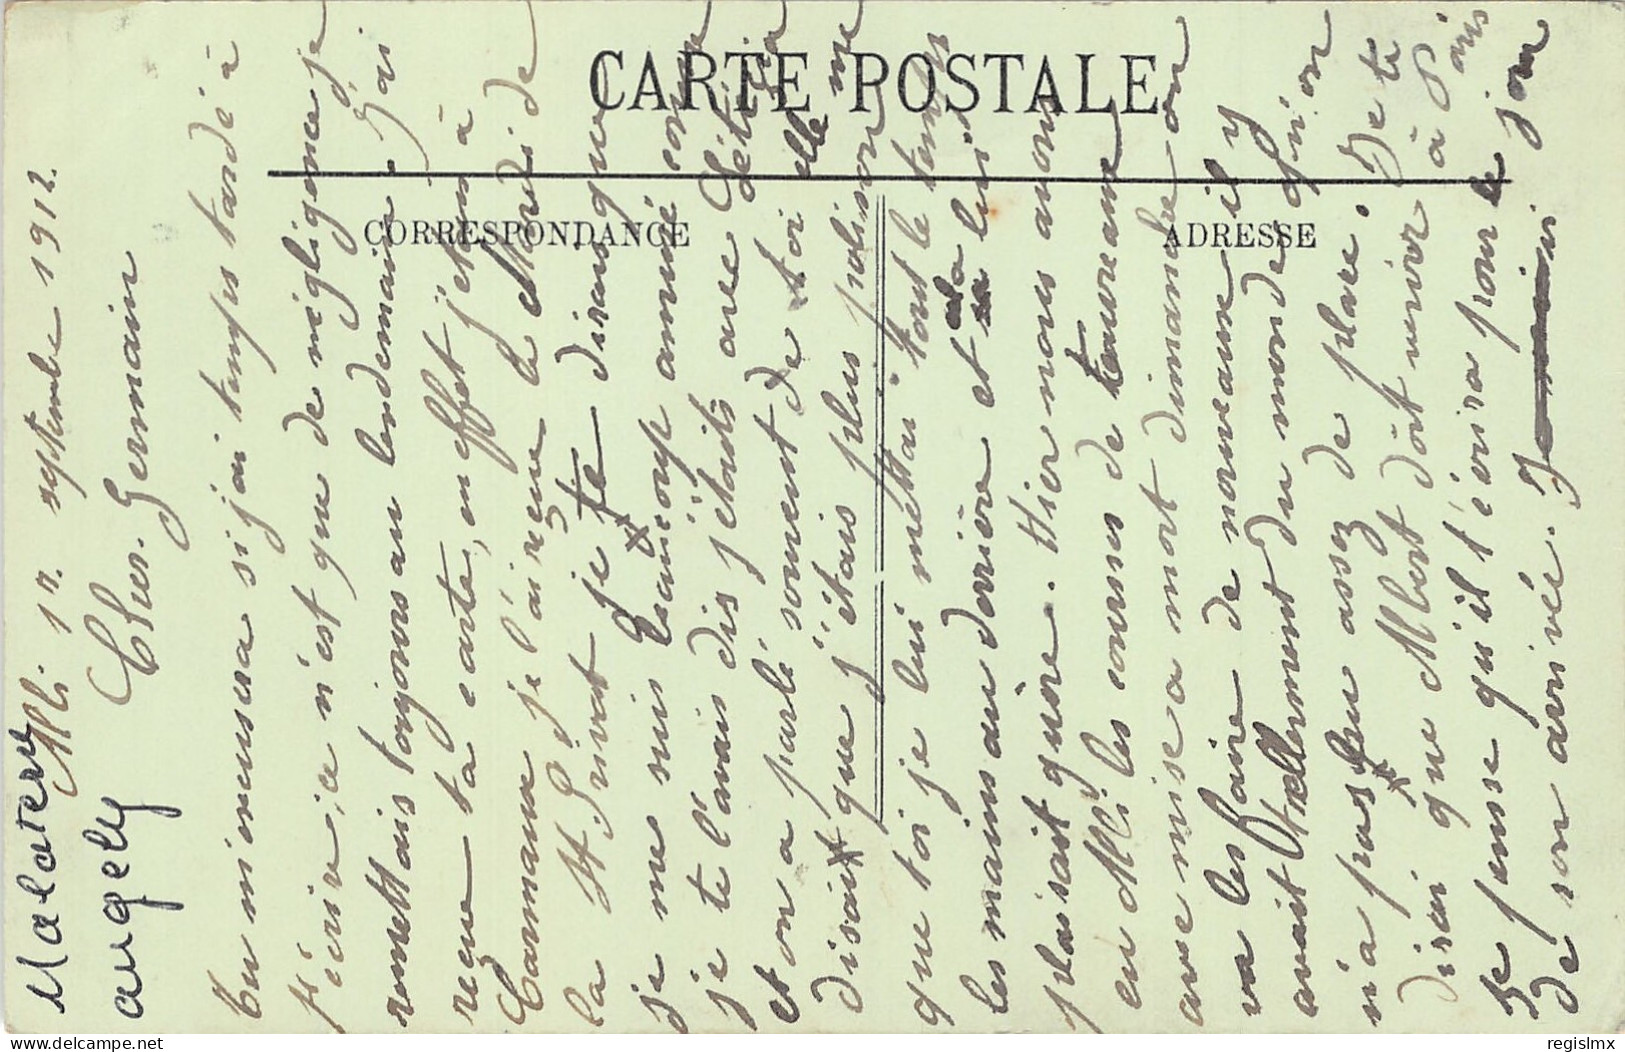 CARTE POSTALE
CORRESPONDANCE
ADRESSE
Malaterre
angely
Alli 1er septembre 1912.
Cher Germain
Tu m'excusera si j'ai temps tardé à
t'écrire, ce n'est que de négligence je
remettais toujours au lendemain. J'ai
reçue ta carte, en effet j'étais à
Carmaux je l'ai reçue le Mardi de
la St. Privat je te dirais que
je me suis beaucoup amusé comme
je te l'avais dis j'étais avec Létitia
et on a parlé souvent de toi elle me
disait que j'étais plus polisson
que toi je lui mettai tout le temps
les mains au derrière et la lui
plaisait guère. Hier nous avons
eu Alli les courses de taureaux
avec mise a mort dimanche on
va les faire de nouveaux il y
avait tellement du monde qu'on
n'a pas eu assez de place. Je te
dirai que Albert doit venir à Paris
je pense qu'il t'écrira pour le jour
de son arrivée. Je
regislmx